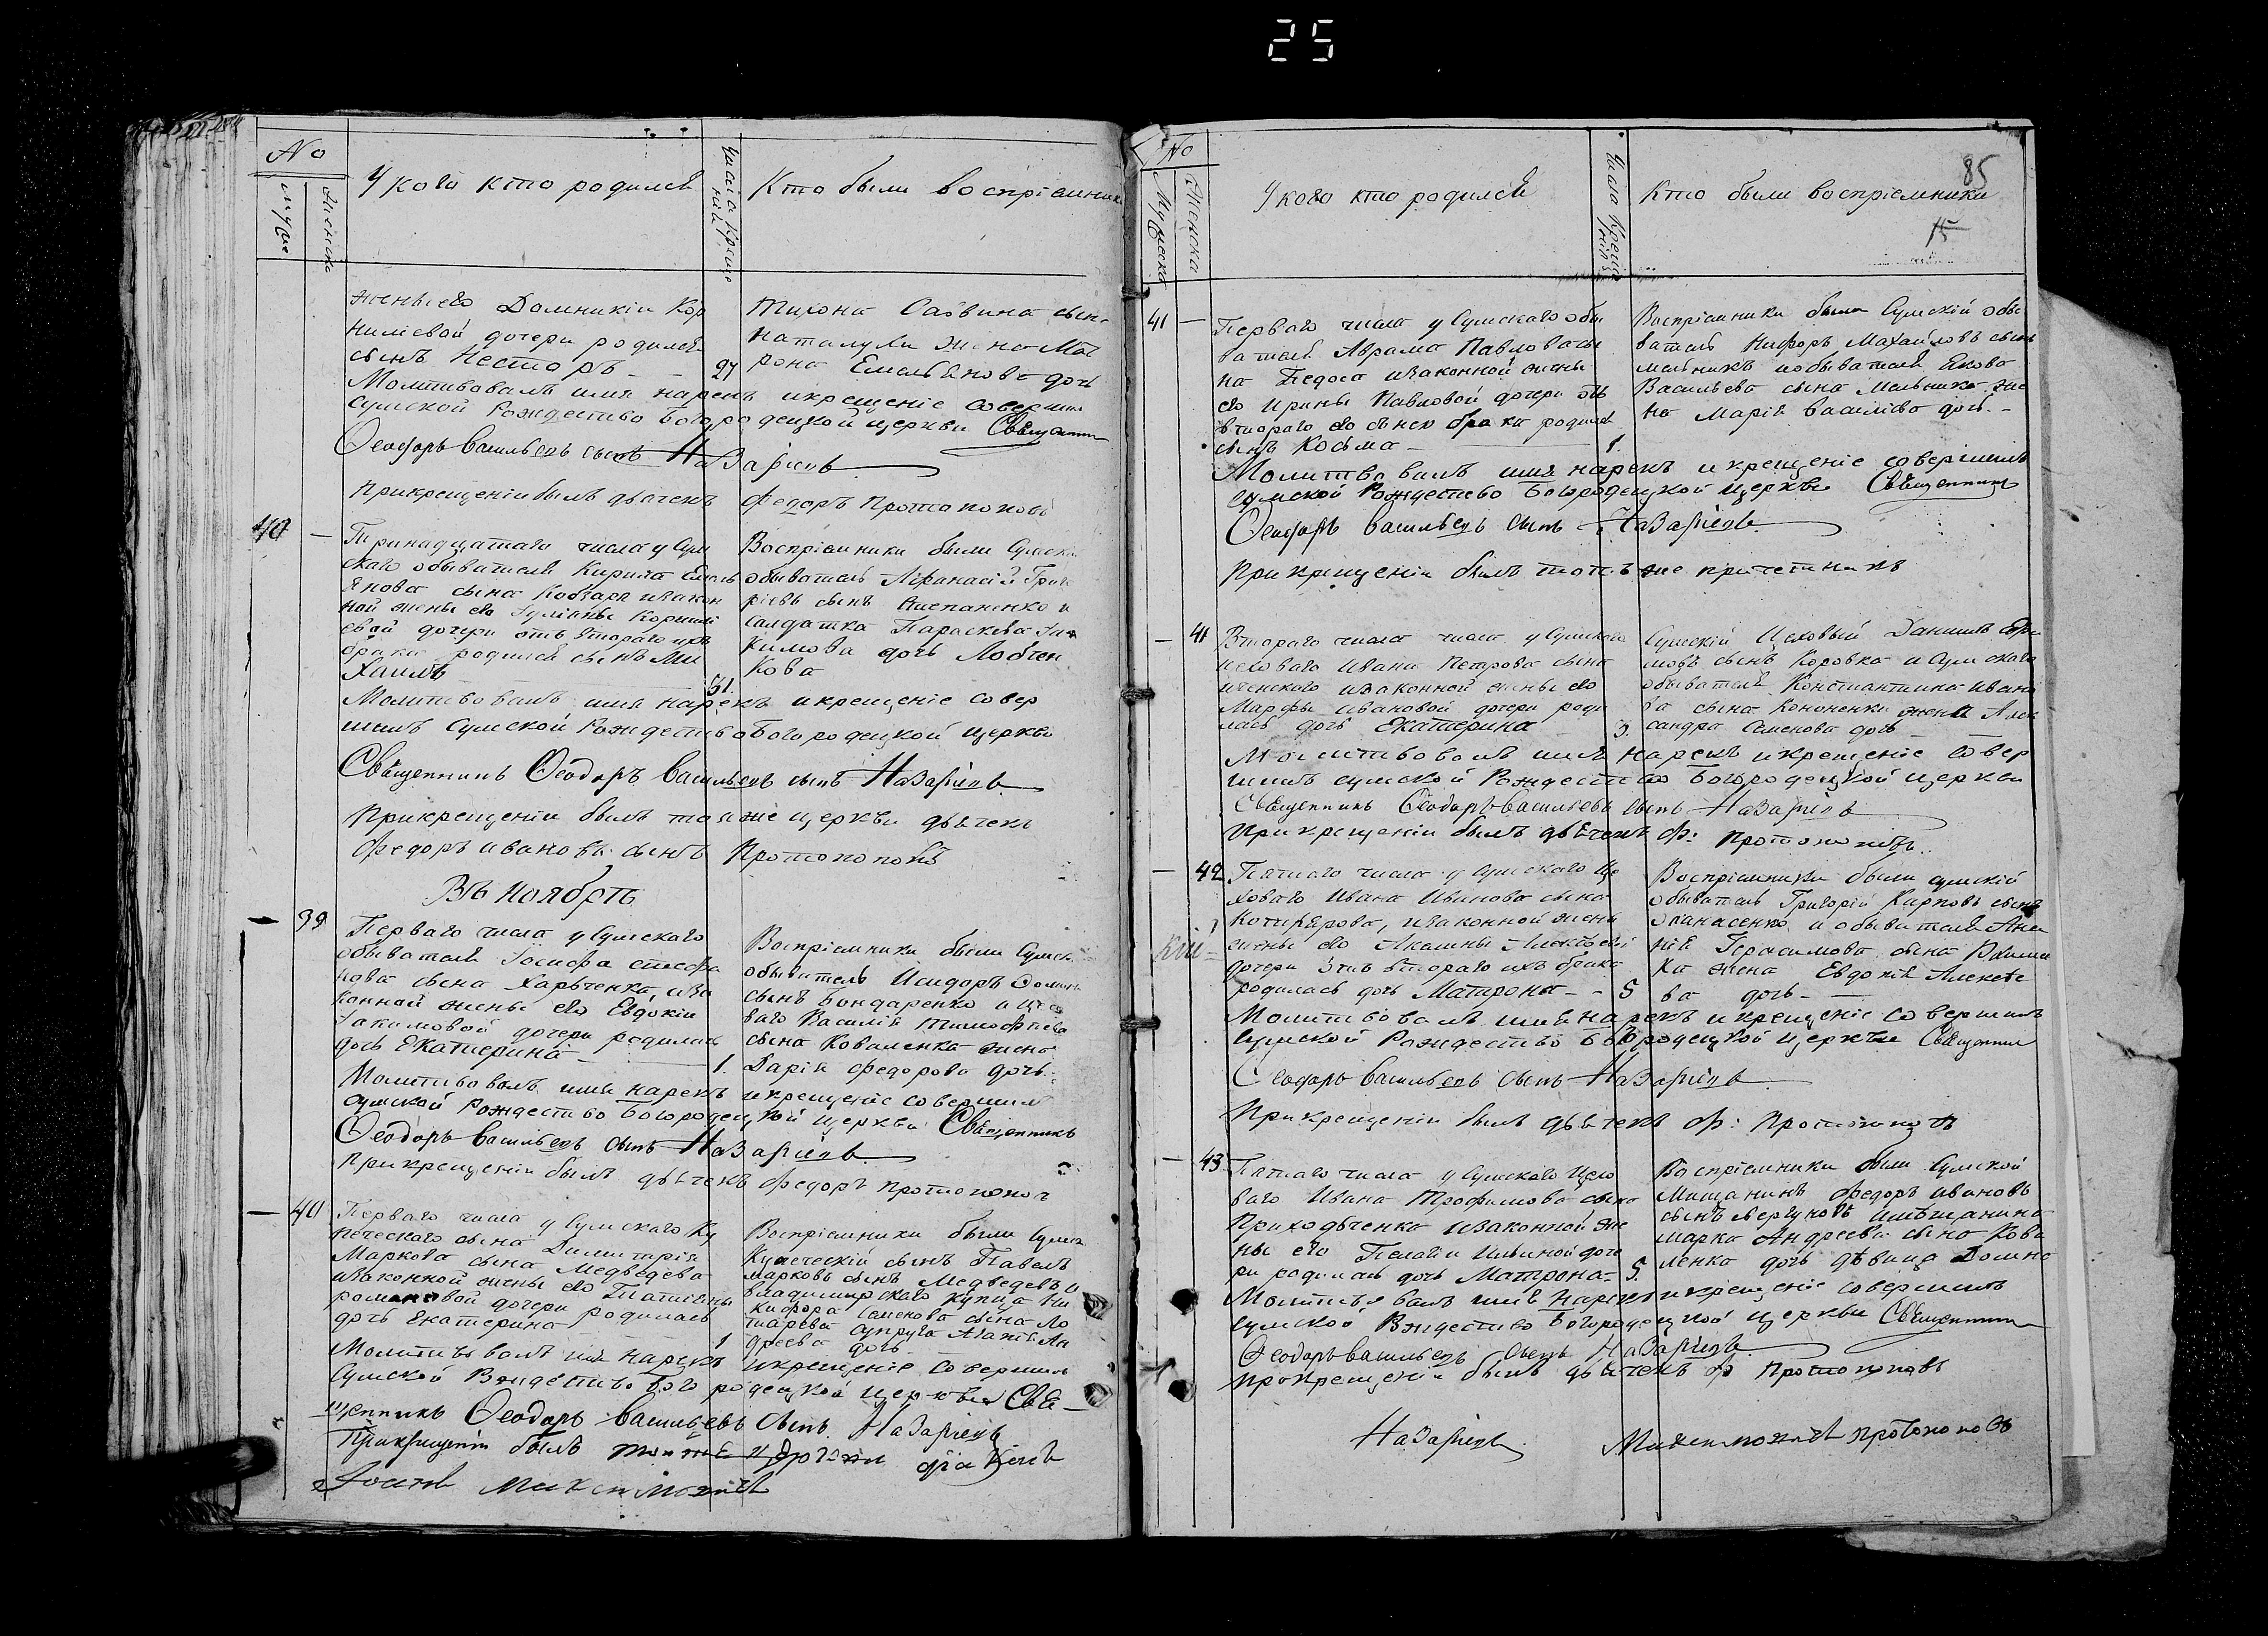 25
No
мужие
женска
У кого кто родился
числа креще
ний
Кто были воспріемники
жены его Домникіи Кор
ниліевой дочери родился
сынъ Несторъ - - 27
Тихона Саввина сына
жена Мат
рона Емельянова дочь
Молитвовалъ имя нарекъ и крещеніе совершилъ
сумской Рождество Богородецкой церкви Священникъ
Ѳеодоръ Васильевъ сынъ Назаріевъ
При крещеніи былъ дьячекъ Федоръ Протопоповъ
40 —
Тринадцатаго числа у Сум
скаго обывателя Кирила Емель
янова сына Кобзаря и закон
ной жены его Іуліаны Корнилі
евой дочери отъ втораго ихъ
брака родился сынъ Ми
хаилъ 31.
Воспріемники были Сумскій
обыватель Афанасій Григо
ріевъ сынъ и
салдатка Параскева
кимова дочь Лобчен
кова
Молитвовалъ имя нарекъ и крещеніе совер
шилъ сумской Рождество Богородецкой церкви
Священникъ Ѳеодоръ Васильевъ сынъ Назаріевъ
При крещеніи былъ тоя же церкви дьячекъ
Федоръ Ивановъ сынъ Протопоповъ
Въ Ноябрѣ
— 39
Перваго числа у Сумскаго
обывателя Іосифа Стефа
нова сына Харьченка, и за
конной жены его Евдокіи
Іакимовой дочери родилась
дочь Екатерина — 1.
Воспріемники были Сумскій
обыватель Исидоръ
сынъ Бондаренко и цехо
ваго Василія Тимофѣева
сына Коваленка жена
Дарія Федорова дочь.
Молитвовалъ имя нарекъ и крещеніе совершилъ
сумской Рождество Богородецкой церкви Священникъ
Ѳеодоръ Васильевъ сынъ Назаріевъ
При крещеніи былъ дьячекъ Федоръ Протопопов
— 40
Перваго числа у Сумскаго Ку
печескаго сына Димитрія
Маркова сына Медведева
и законной жены его Татіяны
романовой дочери родилась
дочь Екатерина 1
Воспріемники были Сумск
Купеческій сынъ Павелъ
Марковъ сынъ Медведевъ и
владимирскаго купца Ни
кифора Семенова сына Ло
тарева супруга Агафія Ан
дреева дочь
Молитвовалъ имя нарекъ и крещеніе совершилъ
Сумской Рождество Богородецкой церкви Свя-
щенникъ Ѳеодоръ Васильевъ сынъ Назаріевъ
При крещеніи былъ тоя же церкви діаконъ
85
15
No
Мужеска
Женска
У кого кто родился
Числа Креще
ній
Кто были воспріемники
41 —
Перваго числа у Сумскаго обы
вателя Аврама Павлова сы
на Педоса и законной жены
его Ирины Павловой дочери отъ
втораго его с нею брака родился
сынъ Косьма — 1.
Воспріемники были Сумскій обы
ватель Никфоръ Михайловъ сынъ
мельникъ и обывателя Якова
Васильева сына Мельника же
на Марія Васильева дочь. -
Молитвовалъ имя нарекъ и крещеніе совершилъ
сумской Рождество Богородецкой церкви Священникъ
Ѳеодоръ Васильевъ сынъ Назаріевъ
При крещеніи былъ тотъ же причетникъ
— 41
Втораго числа числа у Сумскаго
цеховаго Ивана Петрова сына
и законной жены его
Марфы Ивановой дочери роди
лась дочь Екатерина 3.
Сумскій Цеховый Даніилъ
мовъ сынъ Коровка и Сумскаго
обывателя Константина Ивано
ва сына Кононенка жена Алек
сандра Семенова дочь
Молитвовалъ имя нарекъ и крещеніе совер
шилъ сумской Рождество Богородецкой церкви
Священникъ Ѳеодоръ Васильевъ сынъ Назаріевъ
При крещеніи былъ дьячекъ Ф: Протопоповъ
— 42
Пятаго числа у Сумскаго Це
ховаго Ивана Иванова сына
и законной жены
жены его Акилины Алексѣевой
дочери отъ втораго ихъ брака
родилась дочь Матрона - - 5
Воспріемники были сумскій
обыватель Григорій Карповъ сынъ
Опанасенко и обывателя Ана
нія Герасимова сына
ка жена Евдокія Алексѣе
ва дочь —
Молитвовалъ имя нарекъ и крещеніе совершилъ
Сумской Рождество Богородецкой церкви Священникъ
Ѳеодоръ Васильевъ сынъ Назаріевъ
При крещеніи былъ дьячекъ Ф: Протопоповъ
— 43
Пятаго числа у Сумскаго Цехо
ваго Ивана Трофимова сына
Приходьченка и законной же
ны его Пелагіи Ильиной доче
ри родилась дочь Матрона - 5.
Воспріемники были Сумской
Мищанинъ Федоръ Ивановъ
сынъ и мѣщанина
Марка Андреева сына Кова
ленка дочь дѣвица Домна
Молитвовалъ имя нарекъ и крещеніе совершилъ
сумской Рождество Богородецкой церкви Священникъ
Ѳеодоръ Васильевъ сынъ Назаріевъ
При крещеніи былъ дьячекъ Ф Протопоповъ
Назаріевъ
Протопоповъ